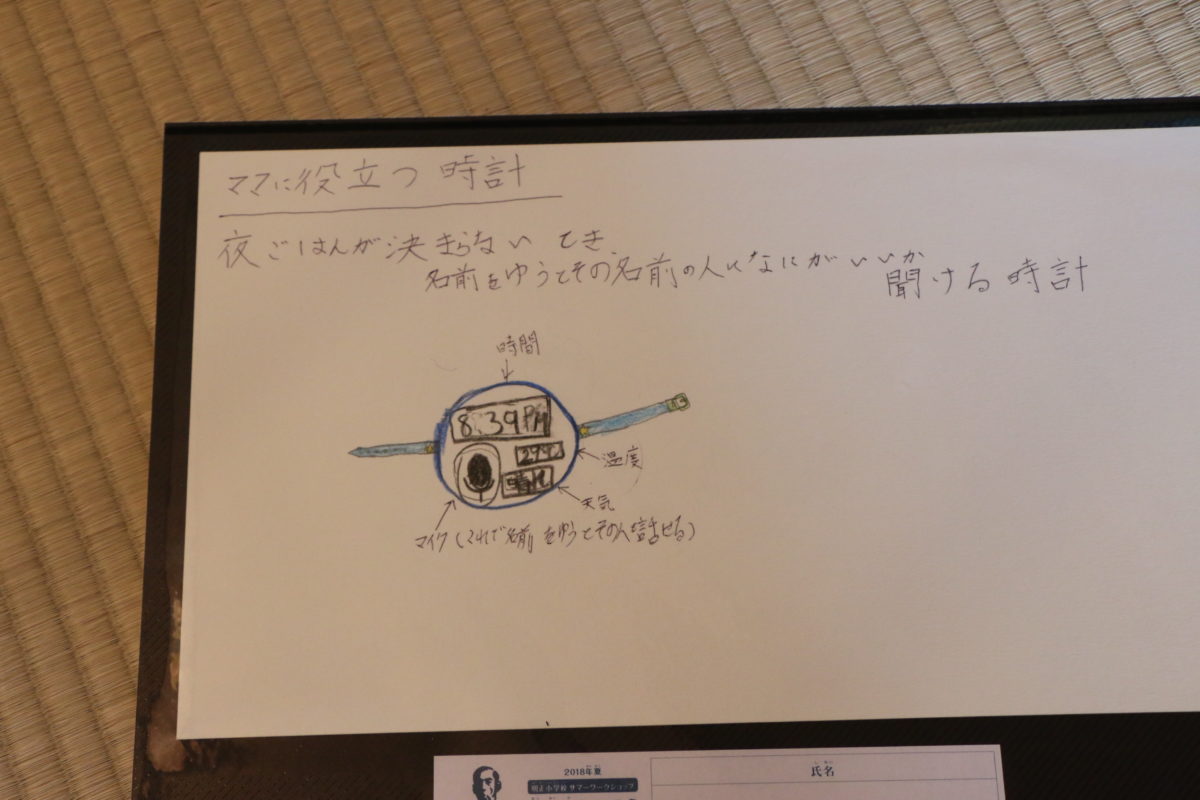 ママに役立つ 時計
夜ごはんが決まらない とき
名前をゆうとその名前の人になにがいいか
聞ける時計
時間
8:39PM
27℃
晴れ
湿度
天気
マイク(これで名前をゆうとその人と話せる)
2018年夏
明正小学校 サマーワークショップ
しめい
氏名